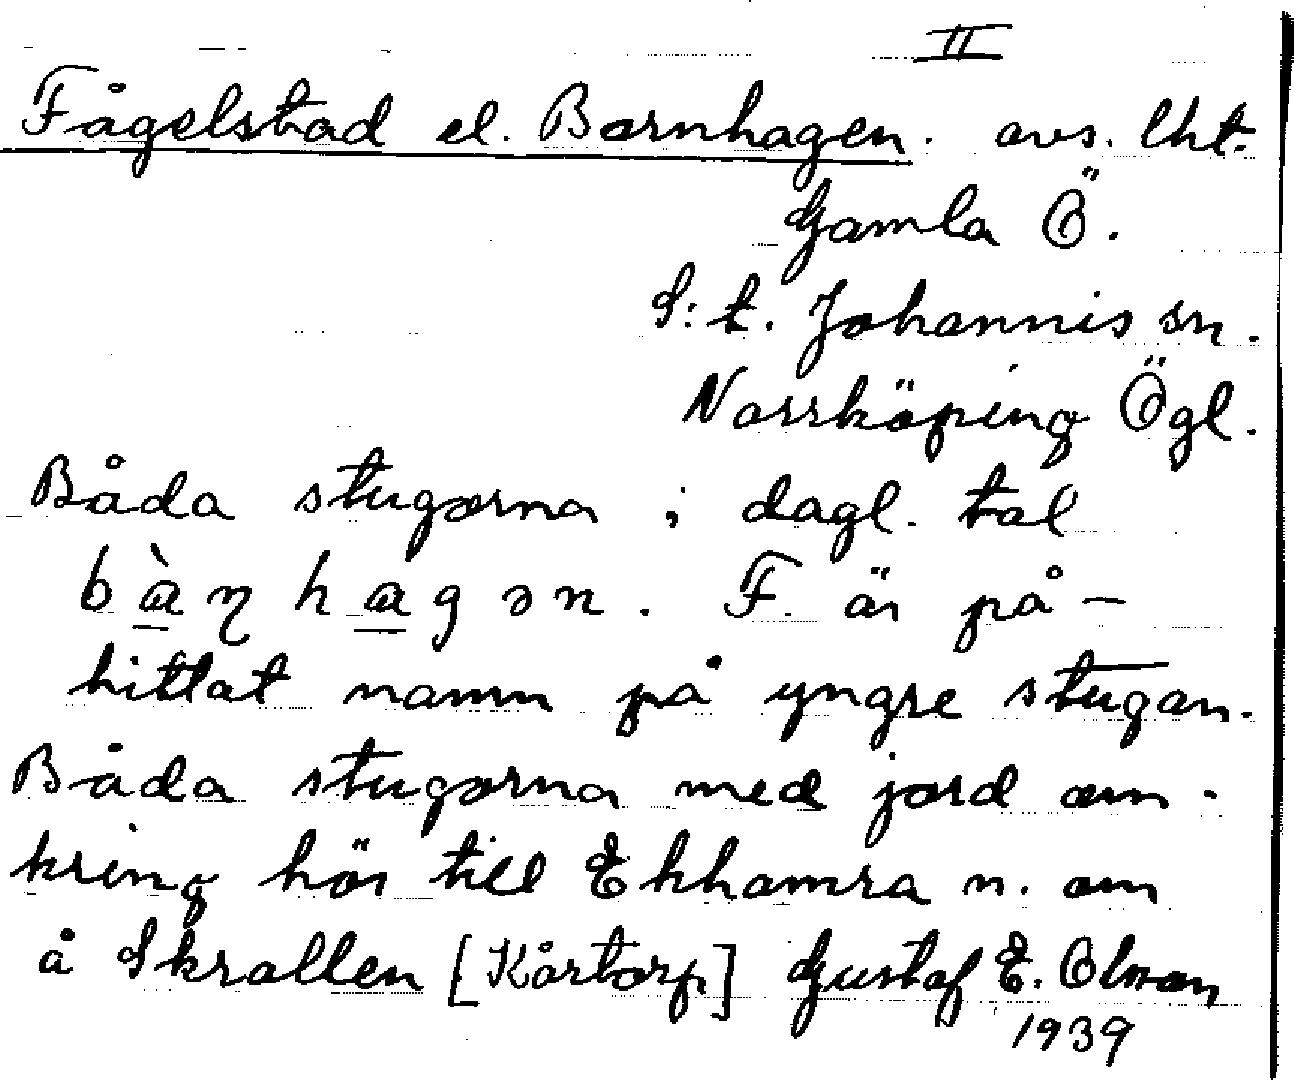 II
Fågelstad el. Barnhagen. avs. lht.
Gamla Ö.
S:t. Johannis sn.
Norrköping Ögl.
Båda stugorna i dagl. tal
bàɳhagən. F. är på-
hittat namn på yngre stugan.
Båda stugorna med jord om-
kring hör till Ekhamra n. om
å Skrallen [Kårtorp] Gustaf E. Olman
1939